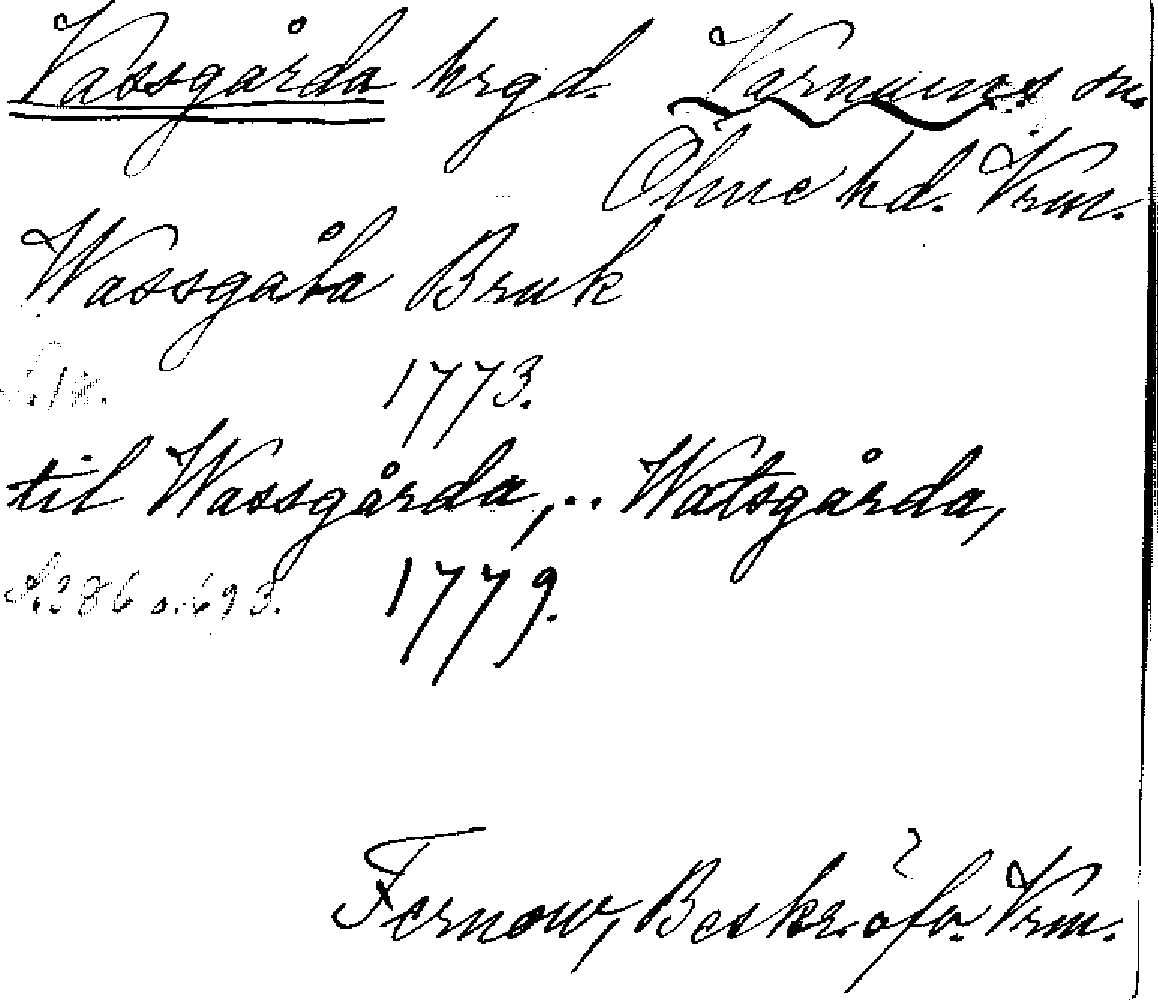 Vassgårda hrgd. Varnums sn.
Ölme hd. Vrm.
Wassgåla Bruk
1773.
til Wassgårda, .. Watsgårda,
S. 286 o. 693. 1779.
Fernow, Beskr. öfv. Vrm.